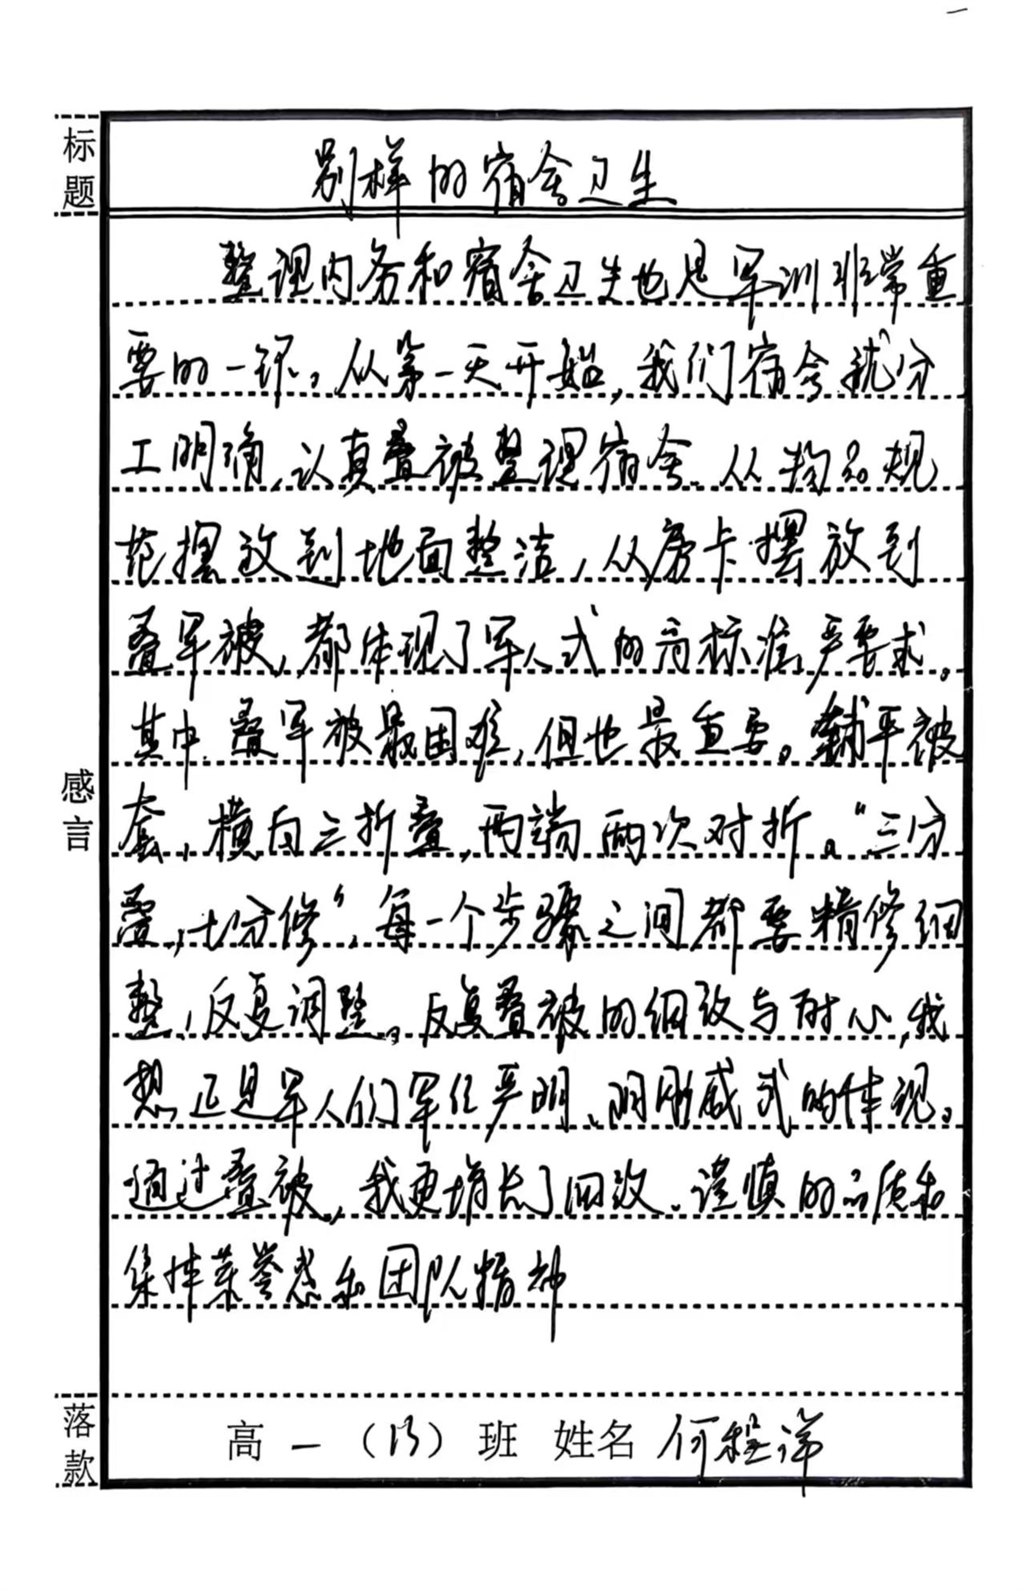 标题
别样的宿舍卫生
整理内务和宿舍卫生也是军训非常重
要的一环。从第一天开始,我们宿舍就分
工明确,认真叠被整理宿舍.从物品规
范摆放到地面整洁,从房卡摆放到
叠军被,都体现了军人式的高标准,严要求。
其中,叠军被最困难,但也最重要。铺平被
套,横向三折叠,两端两次对折。“三分
叠,七分修”,每一个步骤之间都要精修细
整,反复调整。反复叠被的细致与耐心,我
想,正是军人们军纪严明、阴刚威武的体现。
通过叠被,我更增长了细致、谨慎的品质和
集体荣誉感和团队精神
感言
落款
高一(13)班 姓名 何程洋